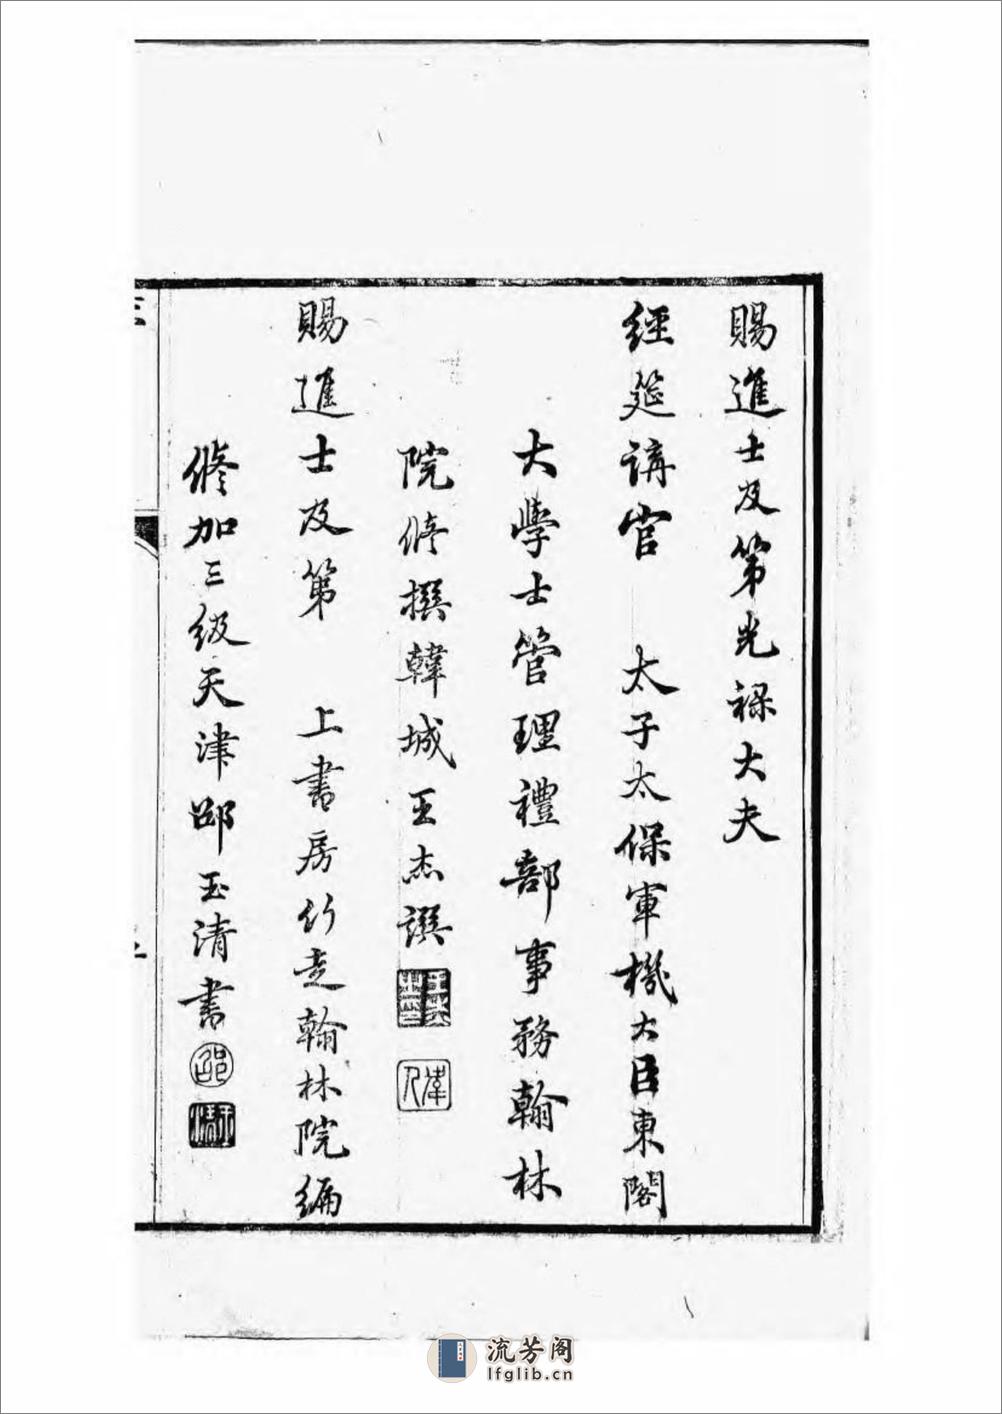 賜進士及第光祿大夫
經筵講官　太子太保軍機大臣東閣
大學士管理禮部事務翰林
院修撰韓城王杰譔
賜進士及第　上書房行走翰林院編
修加三級天津邵玉清書
邵
流芳阁
lfglib.cn